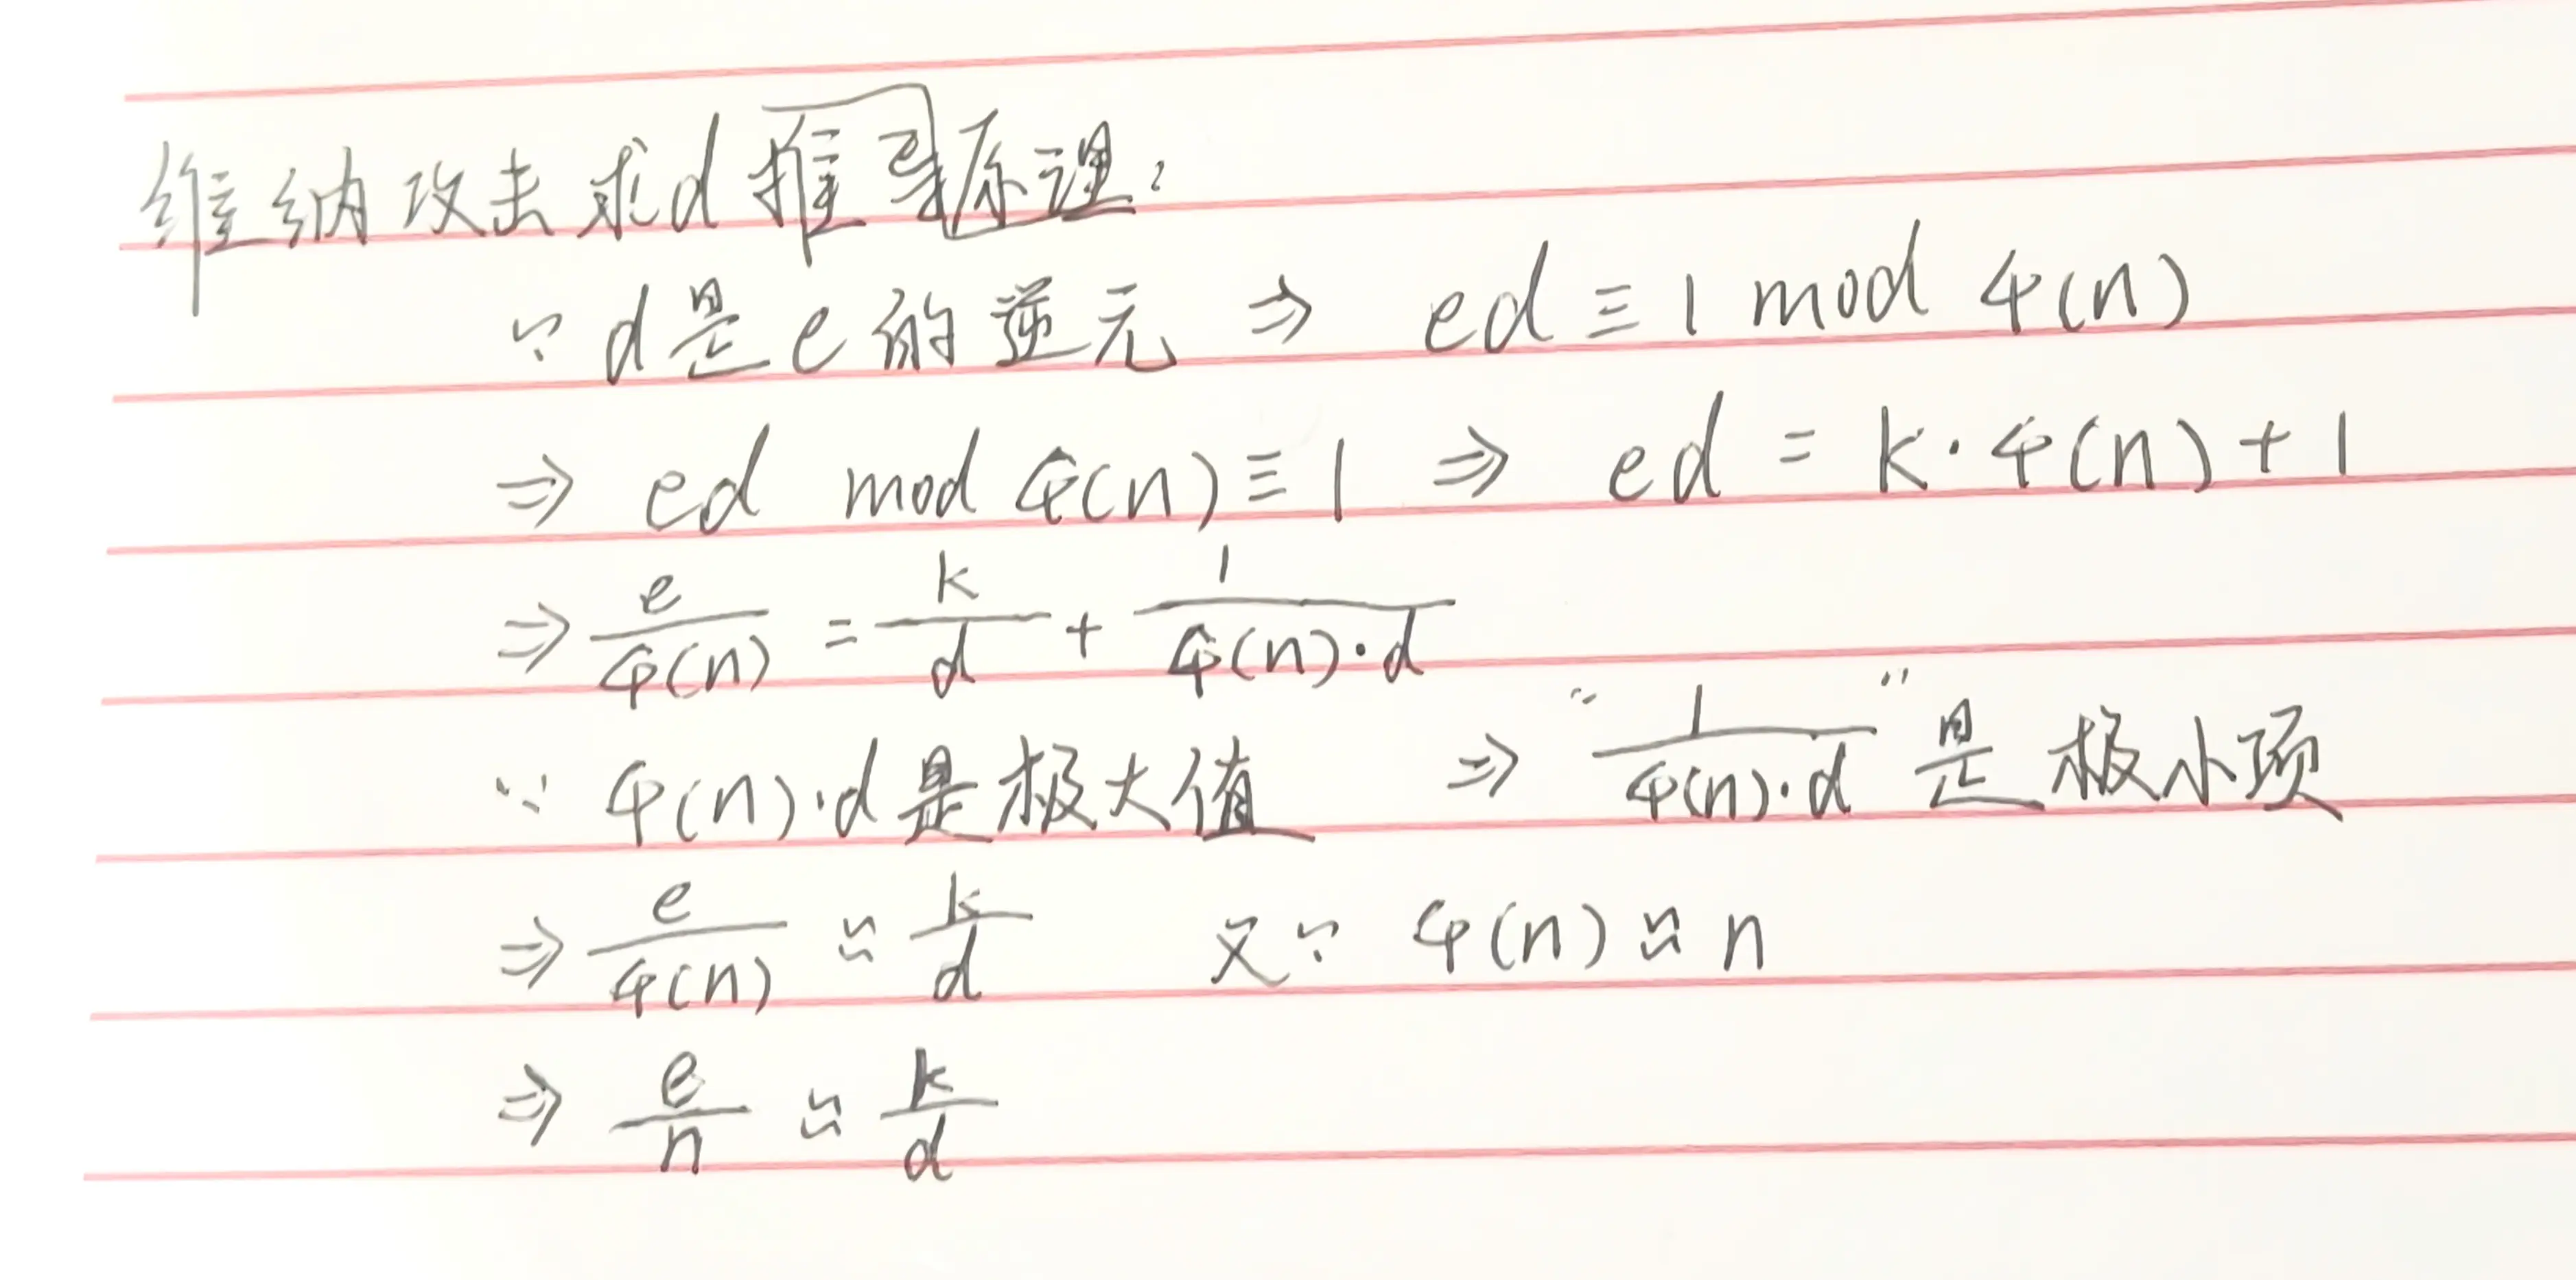 维纳攻击求d推导原理：
∵ d是e的逆元 ⇒ ed ≡ 1 mod φ(n)
⇒ ed mod φ(n) ≡ 1 ⇒ ed = k·φ(n)+1
⇒ e/φ(n) = k/d + 1/φ(n)·d
∵ φ(n)·d是极大值 ⇒ “1/φ(n)·d”是极小项
⇒ e/φ(n) ≈ k/d 又∵ φ(n) ≈ n
⇒ e/n ≈ k/d